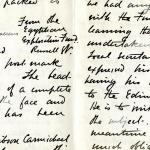 packed is
From the
Egyptian
Exploration Fund
Russell W.
post mark
The head
of a complete
the face and
has been
Carmichael
we had
with the Fun
learning tha
undertaken
Local secretar
expressed his
having his n
to the Edin
He is to mis
the subject.
meantime
much oblig